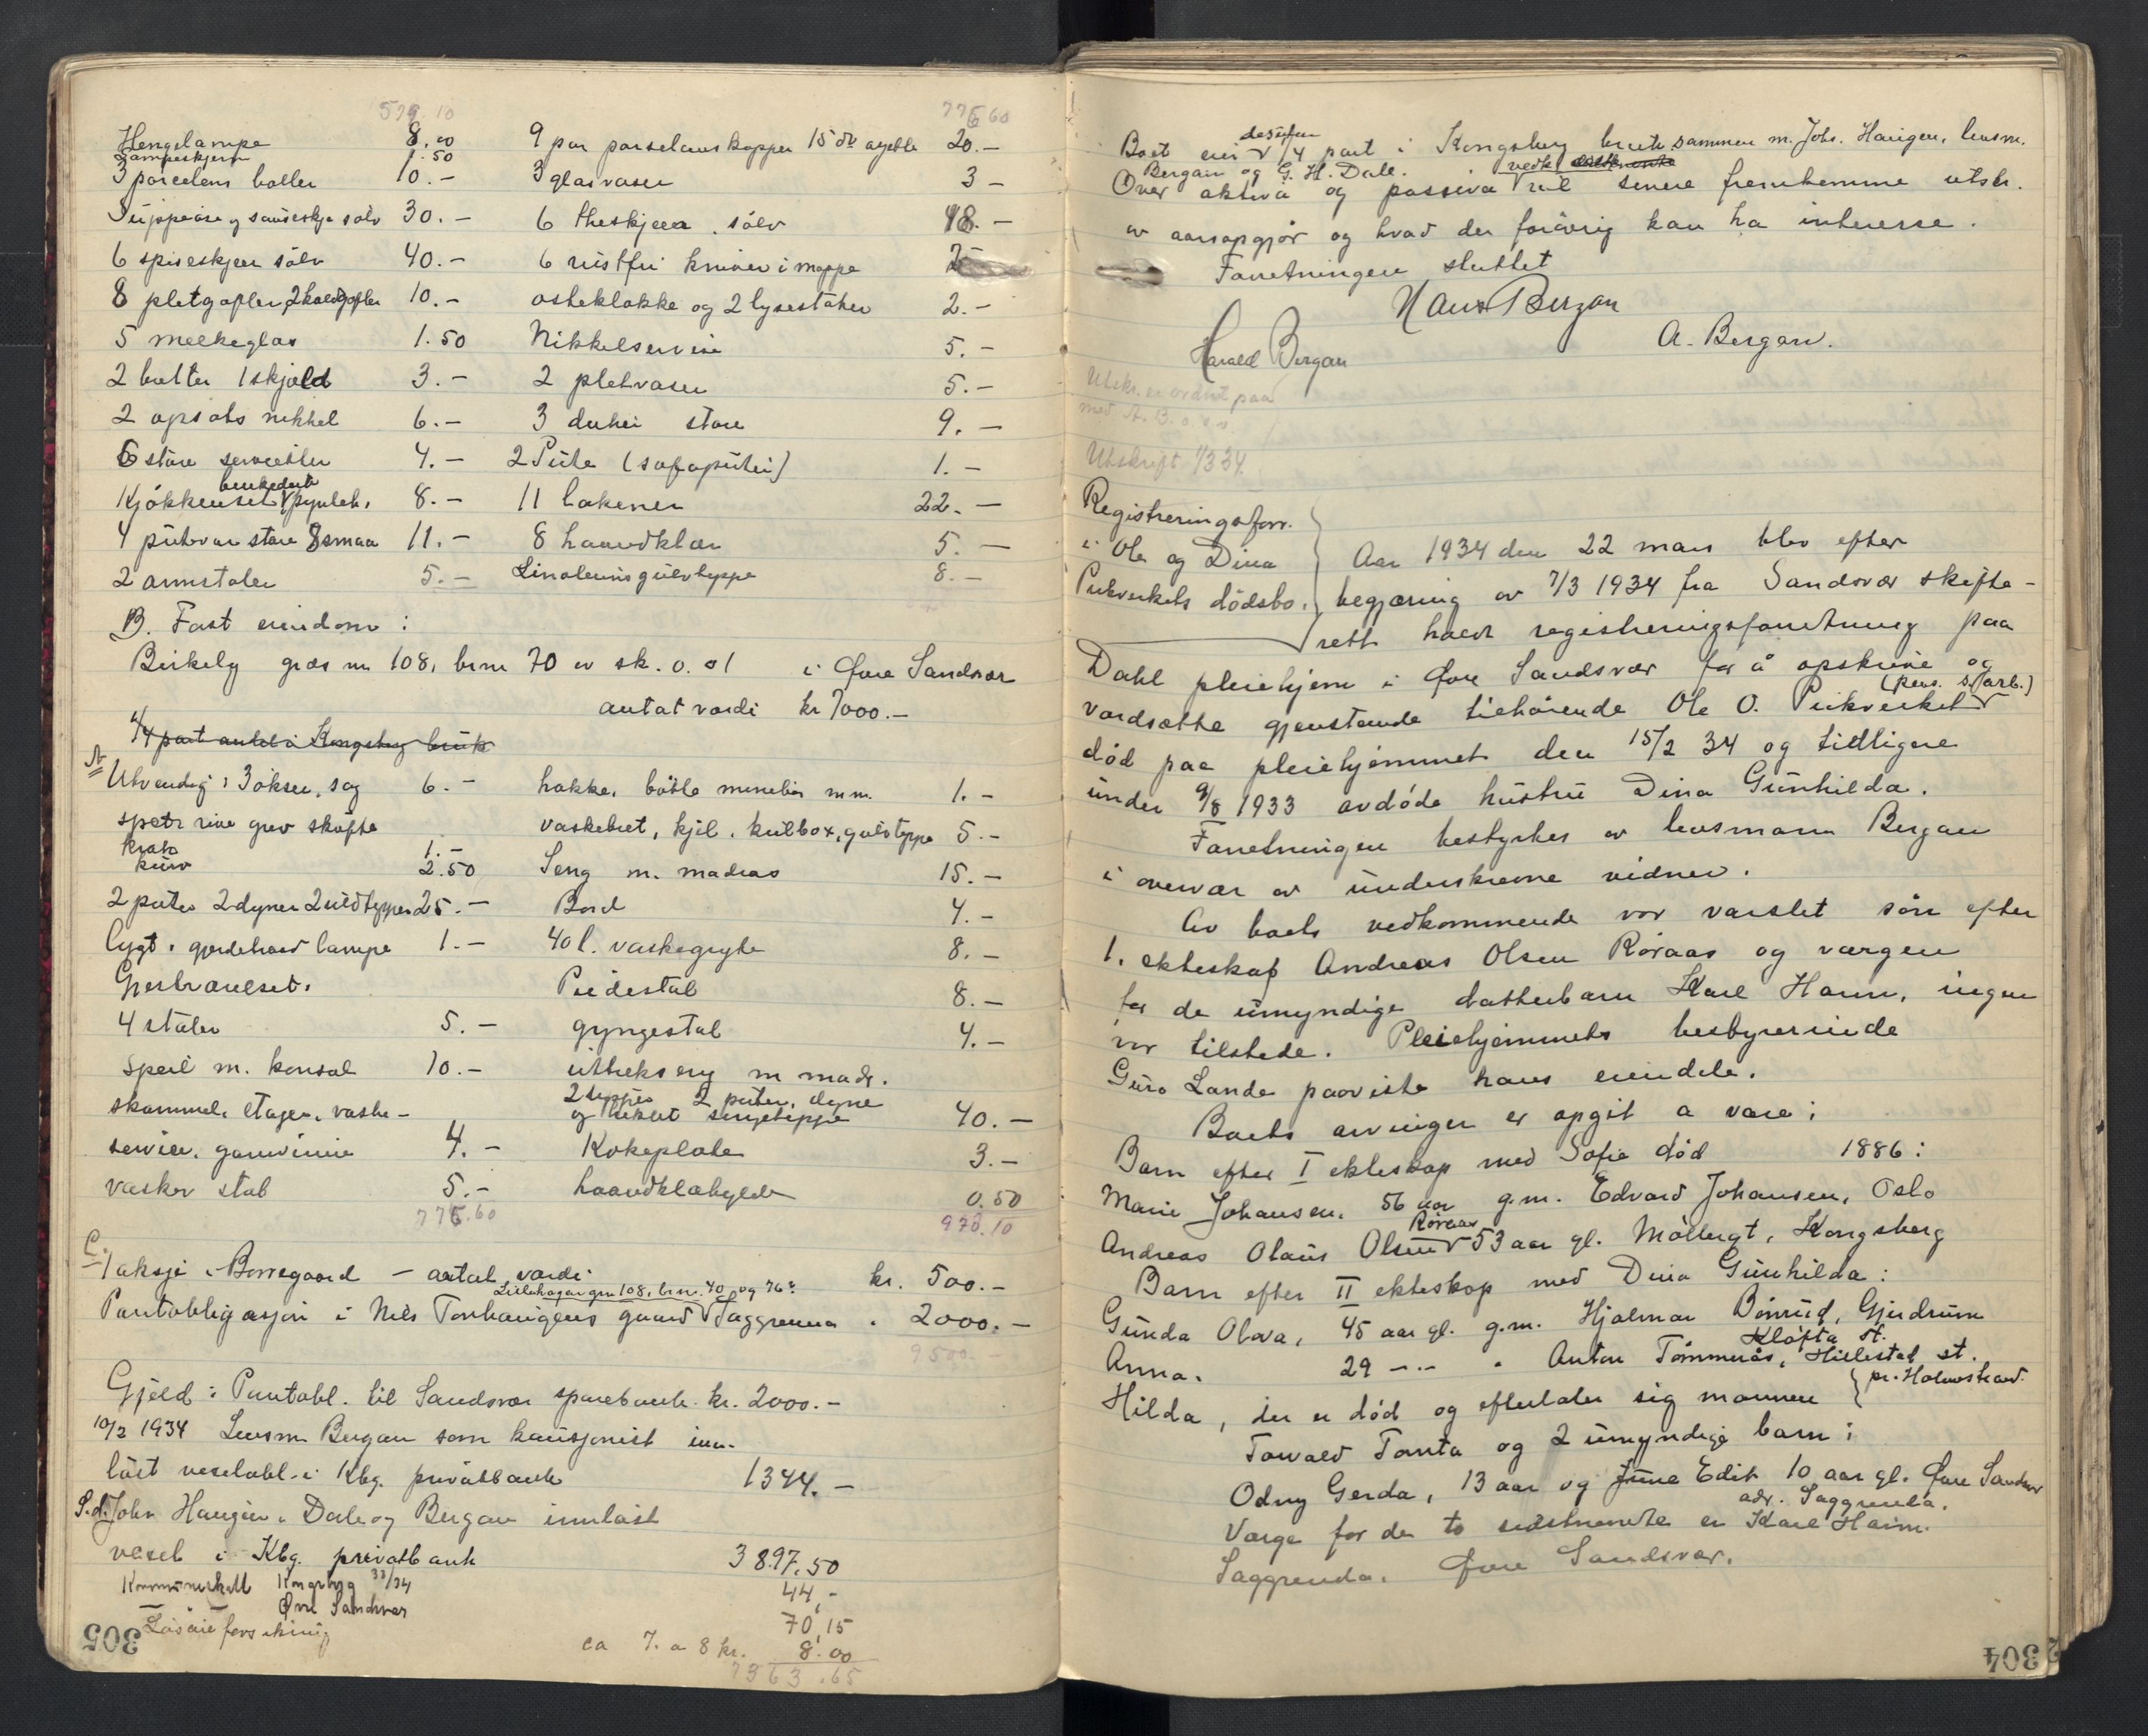 579.10 776.60
Hengelampe 8.00 9 par porselens kopper 15 dk 20.-
Lampeskjerm 1.50
3 porcelens boller 10.- 3 glasvaser 3 -
Suppeøse og sauseskje sølv 30.- 6 theskjeer, sølv 18.-
6 spiseskjeer sølv 40.- 6 rustfri kniver i mappe
8 pletgafler, 2 kaldgafler 10.- osteklokke og 2 lysestaker 2.-
5 melkeglas 1.50 Nikkelservise 5.-
2 butter 1 skjold 3.- 2 pletvaser 5.-
2 opsats nikkel 6.- 3 duker store 9.-
6 store servietter 4.- 2 Pute (sofaputer) 1.-
benkedert
Kjøkkenset pynteh. 8.- 11 lakener 22.-
4 putevar store 8 smaa 11.- 8 haandklær 5.-
2 armstoler 5.- Linoleumsgulvteppe 8.-
B. Fast eiendom:
Birkely grds nr 108, brnr 70 av sk. 0.01 i Øvre Sandsvær
antat verdi kr 7000.-
1/4 part andel i Kongsberg bruk
A
Utvendig: 3 økser, sag 6.- hakke, bøtte m.m. 1.-
spett rive grev skuffe vaskebret, kjel, kulbox, gulvteppe 5.-
krak 1.-
kurv 2.50 Seng m. madras 15.-
2 puter 2 dyner 2 uldtepper 25.- Bord 4.-
lygt, lampe 1.- 40 l. vaskegryte 8.-
Piedestal 8.-
4 stoler 5.- gyngestol 4.-
Speil m. konsol 10.- uttrekseng m madr.
2 tepper 2 puter, dyne
skammel, etager, vaske- og heklet sengeteppe 40.-
servise, gardiner 4.- Kokeplate 3.-
vasker stol 5.- haandklæhylde 0.50
776.60 970.10
C.
1 aksje i Borregaard - antat verdi kr. 500.-
Lillehagen gnr 108, brnr. 40 og 76?
Pantobligasjon i Nils Torhaugens gaard Saggrenda 2000.-
9500.-
Gjeld: Pantobl. til Sandsvær sparebank kr. 2000.-
10/2 1934 Lensm Bergan som kausjonist inn-
løst vekselobl. i Kbg. privatbank 1344.-
S.d. John Haugen, Dale og Bergan innløst
veksel i Kbg. privatbank 3897.50
Kommuneskatt Kongsberg 33/34 44,-
Øvre Sandsvær 70,15
Løsøreforsikring ca 7. a 8 kr. 8.00
7363.65
305
desuten
Boet eier 1/4 part i Kongsberg bruk sammen m. Johs. Haugen, lensm.
Bergan og G. H. Dale. vedk.
Over aktiva og passiva vil senere fremkomme utskr.
av aarsopgjør og hvad der forøvrig kan ha interesse.
Forretningen sluttet
Hans Bergan
Harald Bergan A. Bergan.
Utskr. er ordnet paa
med A. B. o.s.v.
Utskrift 1/3 34.
Registreringsforr.
i Ole og Dina Aar 1934 den 22 mars blev efter
Pukverkets dødsbo. begjæring av 7/3 1934 fra Sandsvær skifte-
rett holdt registreringsforretning paa
Dahl pleiehjem i Øvre Sandsvær for å opskrive og
(pens. s. arb.)
verdsætte gjenstande tilhørende Ole O. Pukverket
død paa pleiehjemmet den 15/2 34 og tidligere
under 9/8 1933 avdøde hustru Dina Gunhilda.
Forretningen bestyrkes av lensmann Bergan
i overvær av underskrevne vidner.
Av boets vedkommende var varslet søn efter
1. ekteskap Andreas Olsen Røraas og vergen
for de umyndige datterbarn Karl Horm, ingen
var tilstede. Pleiehjemmets bestyrerinde
Guro Lande paaviste hans eiendele.
Boets arvinger er opgit a være:
Barn efter I ekteskap med Sofie død 1886:
Marie Johansen, 56 aar g.m. Edvard Johansen, Oslo
Røraas
Andreas Olaus Olsen 53 aar gl. Møllergt, Kongsberg
Barn efter II ekteskap med Dina Gunhilda:
Gunda Olava, 45 aar gl. g.m. Hjalmar Bönrud, Gjerdrum
Kløfta st.
Anna. 29 -"- " Anton Tømmerås, Hillestad st.
pr. Holmestrand.
Hilda, der er død og efterlater sig mannen
Torvald Tonta og 2 umyndige barn:
Odny Gerda, 13 aar og June Edit 10 aar gl. Øvre Sandsvær
adr. Saggrenda.
Verge for de to sidstnevnte er Karl Haim.
Saggrenda, Øvre Sandsvær.
304